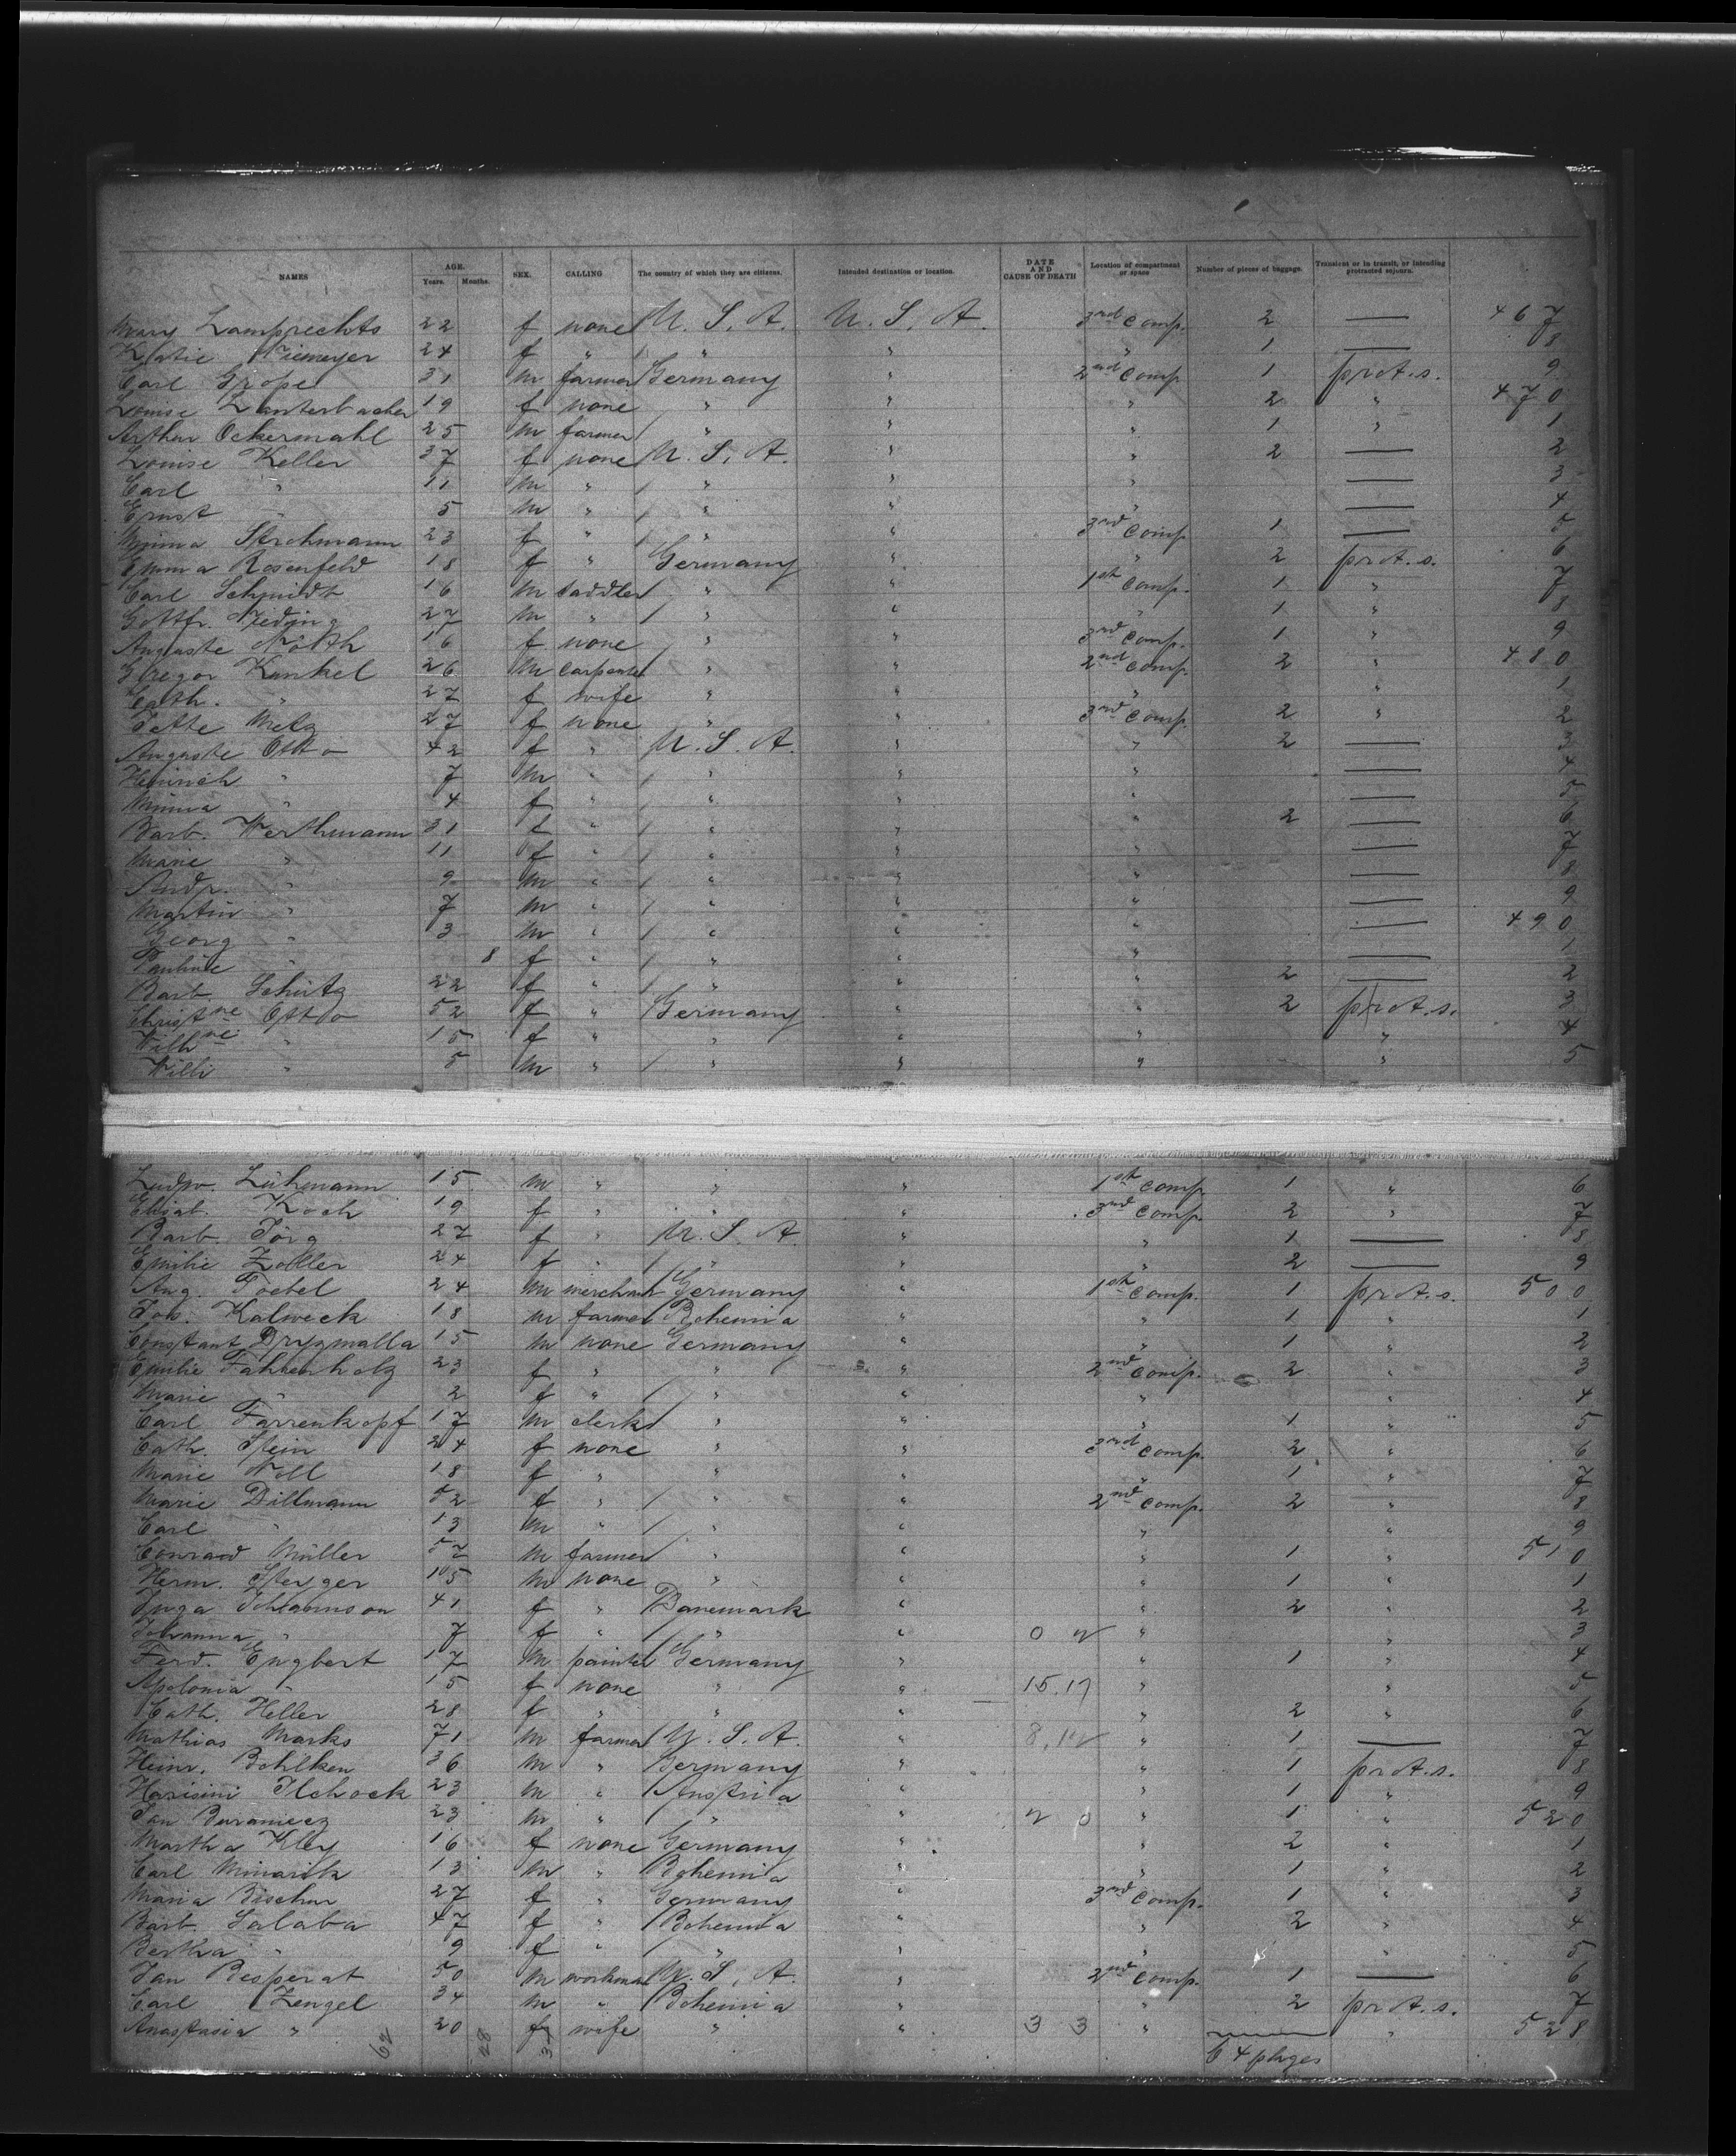 NAMES AGE. Years. Months. SEX. CALLING The country of which they are citizens. Intended destination or location. DATE AND CAUSE OF DEATH Location of compartment or space Number of pieces of baggage. Transient or in transit, or intending protracted sojourn.
Mary Lamprechts 22 f none U. S. A. U. S. A. 3rd Comp. 2 — 467
Katie Niemeyer 24 f " " " " 1 — 8
Carl Grope 31 m farmer Germany " 2nd Comp 1 prot. s. 9
Louise Lauterbacher 19 f none " " " 2 " 470
Arthur Ockermahl 25 m farmer " " " 1 " 1
Louise Keller 37 f none U. S. A. " " 2 — 2
Carl " 11 m " " " " — 3
Ernst " 5 m " " " " — 4
Minna Strohmann 23 f " " " 3rd Comp 1 — 5
Emma Rosenfeld 18 f " Germany " " 2 prot. s. 6
Carl Schmidt 16 m saddler " " 1st Comp. 1 " 7
Gottfr. Nieding 27 m " " " " 1 " 8
Auguste Nöth 16 f none " " 3rd Comp. 1 " 9
Gregor Kunkel 26 m carpenter " " 2nd Comp. 2 " 480
Cath. " 27 f wife " " " " 1
Jette Metz 27 f none " " 3rd Comp. 2 " 2
Auguste Otto 42 f " U. S. A. " " 2 — 3
Heinrich " 7 m " " " " — 4
Minna " 4 f " " " " — 5
Barb. Werthmann 31 f " " " " 2 — 6
Marie " 11 f " " " " — 7
Andr. " 9 m " " " " — 8
Martin " 7 m " " " " — 9
Georg " 3 m " " " " — 490
Pauline " 8 f " " " " — 1
Barb. Schütz 22 f " " " " 2 — 2
Christne Otto 52 f " Germany " " 2 prot. s. 3
Wilhne " 15 f " " " " " 4
Willi " 5 m " " " " " 5
Ludw. Lühmann 15 m " " " 1st Comp 1 " 6
Elisab. Koch 19 f " " " 3rd Comp. 2 " 7
Barb. Jörg 27 f " U. S. A. " " 1 — 8
Emilie Zoller 24 f " " " " 2 — 9
Aug. Toebel 24 m merchant Germany " 1st Comp. 1 prot. s. 500
Jos. Kalweck 18 m farmer Bohemia " " 1 " 1
Constant Drygmalla 15 m none Germany " " 1 " 2
Emilie Fahrenholz 23 f " " " 2nd Comp. 2 " 3
Marie " 2 f " " " " " 4
Carl Farrenkopf 17 m clerk " " " 1 " 5
Cath. Stein 24 f none " " 3rd Comp. 2 " 6
Marie Noll 18 f " " " " 1 " 7
Marie Dillmann 52 f " " " 2nd Comp. 2 " 8
Carl " 13 m " " " " " 9
Conrad Müller 57 m farmer " " " 1 " 510
Herm. Steyger 15 m none " " " 1 " 1
Inga Johannson 41 f " Danemark " " 2 " 2
Johanna " 7 f " " " " " 3
Ferd. Engbert 17 m painter Germany " " 1 " 4
Apolonia " 15 f none " " 15.17 " " 5
Cath. Heller 28 f " " " " 2 " 6
Mathias Marks 71 m farmer U. S. A. " " 1 — 7
Heinr. Bohlken 36 m " Germany " " 1 prot. s. 8
Harisini Ilchock 23 m " Austria " " 1 " 9
Jan Buraniecz 23 m " " " " 1 " 520
Martha Kley 16 f none Germany " " 2 " 1
Carl Minarik 13 m " Bohemia " " 1 " 2
Maria Bischur 27 f " Germany " 3rd Comp. 1 " 3
Barb. Salaba 47 f " Bohemia " " 2 " 4
Bertha " 9 f " " " " " 5
Jan Besperat 50 m workman U. S. A. " 2nd Comp. 1 — 6
Carl Zengel 34 m " Bohemia " " 2 prot. s. 7
Anastasia " 20 f wife " " 3 3 " " 528
62 28 64 pkges